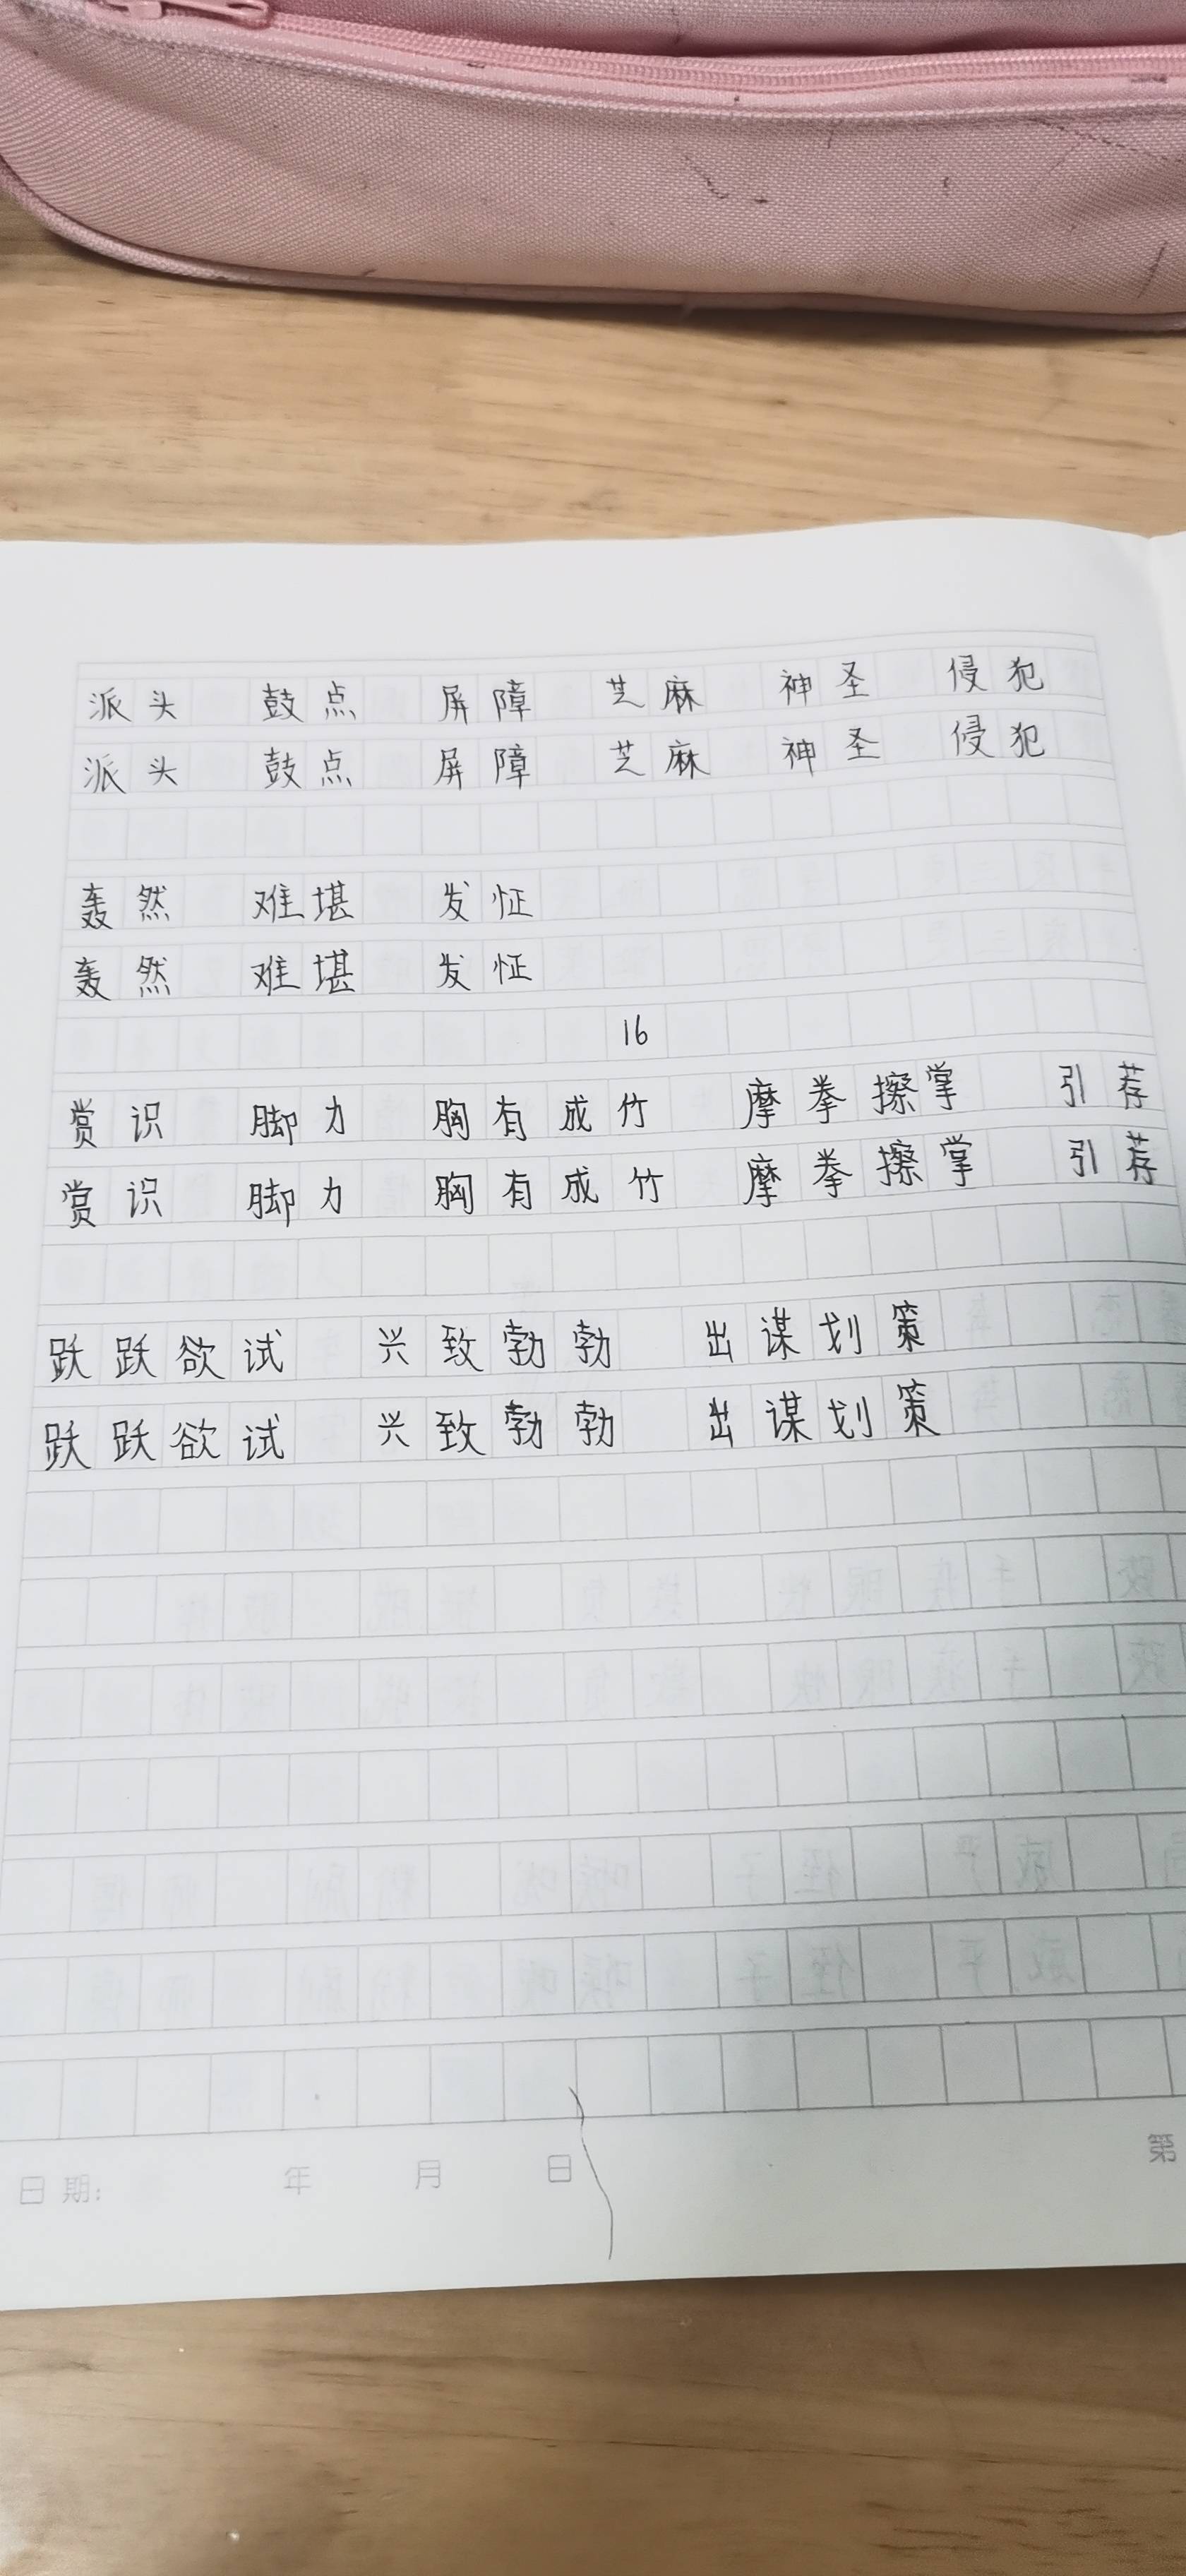 派头 鼓点 屏障 芝麻 神圣 侵犯
派头 鼓点 屏障 芝麻 神圣 侵犯
轰然 难堪 发怔
轰然 难堪 发怔
16
赏识 脚力 胸有成竹 摩拳擦掌 引荐
赏识 脚力 胸有成竹 摩拳擦掌 引荐
跃跃欲试 兴致勃勃 出谋划策
跃跃欲试 兴致勃勃 出谋划策
日期: 年 月 日 第